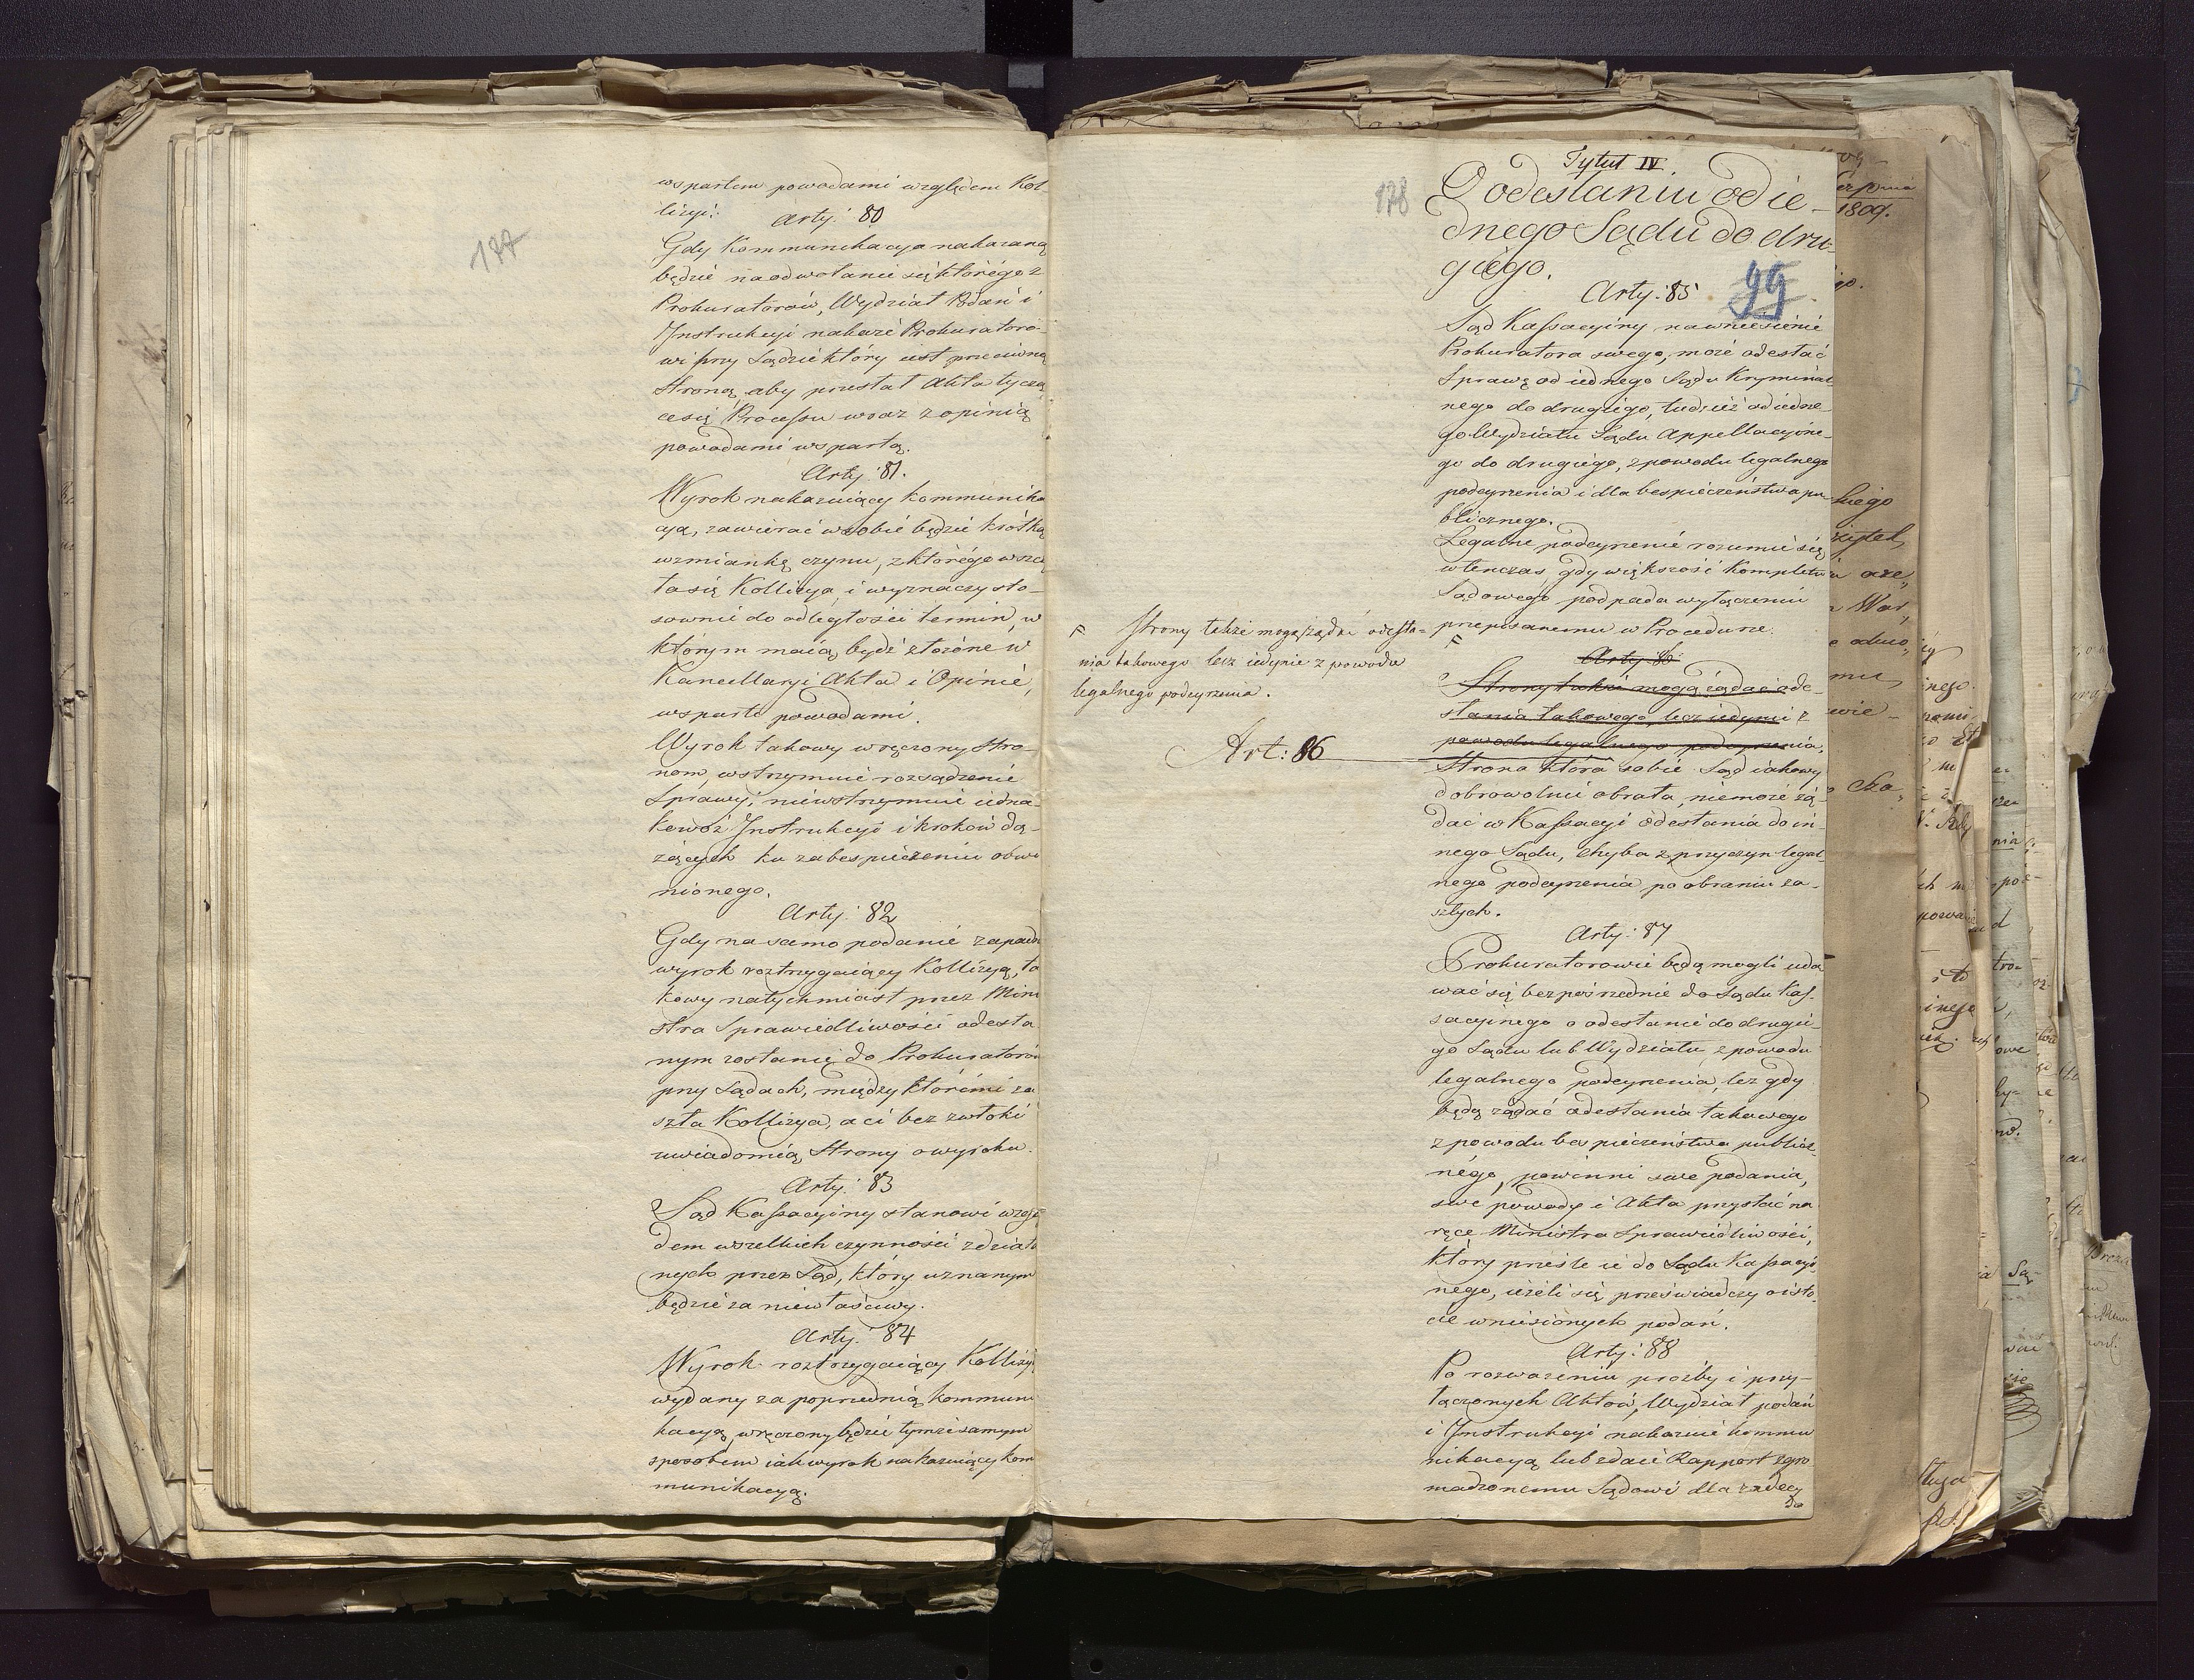 177
wspartem powodami względem Kol
lizyi.
Arty: 80
Gdy Kommunikacya nakazaną
będzie na odwołanie się któregoz
Prokuratorów, Wydział Podań i
Instrukcyi nakaże Prokuratoro-
wi przy Sądzie który iest przeciwną
Stroną, aby przesłał Akta tyczą
ce się Processu wraz z opinią
powodami wspartą.
Arty: 81.
Wyrok nakazuiący kommunika
cyą, zawierać w sobie będzie krótką
wzmiankę czynu, z którego wszczę
ła się Kollizya, i wyznaczy sto-
sownie do odległości termin, w
którym maią bydź złożone w
Kancellaryi Akta i Opinie,
wsparte powodami.
Wyrok takowy wręczony Stro-
nom, wstrzymuie rozsądzenie
Sprawy; niewstrzymuie iedna-
kowoż Instrukcyi i kroków dą-
żących ku zabespieczeniu obwi
nionego.
Arty: 82
Gdy na samo podanie zapadn
wyrok roztrzygaiący Kollizyą, ta
kowy natychmiast przez Mini
stra Sprawiedliwości odesła
nym zostanie do Prokuratorów
przy Sądach, między któremi za
szła Kollizya, a ci bez zwłoki
uwiadomią Strony o wyroku.
Arty: 83
Sąd Kassacyiny stanowi wzglę
dem wszelkich czynności zdziała
nych przez Sąd, który uznanym
będzie za niewłaściwy.
Arty: 84
Wyrok roztrzygaiący Kollizyą
wydany za poprzednią kommuni
kacyą, wręczony będzie tymże samym
sposobem iak wyrok nakazuiący kom
munikacyą.
178
Tytuł IV.
O odesłaniu od ie-
dnego Sądu do dru-
giego.
99
Arty: 85
Sąd Kassacyiny na wniesienie
Prokuratora swego, może odesłać
Sprawę od iednego Sądu Kryminal
nego do drugiego, tudzież od iedne-
go Wydziału Sądu Appellacyine-
go do drugiego, z powodu legalnego
podeyrzenia i dla bespieczeństwa pu
blicznego.
Legalne podeyrzenie rozumie się
wtenczas, gdy większość Kompletu
Sądowego podpada wyłączeniu
przepisanemu w Procedurze.
F
F Strony także mogą żądać odesła=
nia takowego lecz iedynie z powodu
legalnego podeyrzenia.
Arty: 86
Strony także mogą żądać ode-
słania takowego, lecz iedynie z
powodu legalnego podeyrzenia,
Art: 86
Strona która sobie Sąd iakowy
dobrowolnie obrała, niemoże żą-
dać w Kassacyi odesłania do in-
nego Sądu, chyba z przyczyn legal-
nego podeyrzenia po obraniu za-
szłych.
Arty: 87
Prokuratorowie będą mogli uda
wać się bezpośrednie do Sądu Kas-
sacyinego o odesłanie do drugie-
go Sądu lub Wydziału z powodu
legalnego podeyrzenia, lez gdy
będą żądać odesłania takowego
z powodu bespieczeństwa publicz-
nego, powinni swe podania,
swe powody i Akta przysłać na
ręce Ministra Sprawiedliwości,
który prześle ie do Sądu Kassacyi-
nego, ieżeli się przeświadczy o isto-
cie wniesionych podań.
Arty: 88
Po rozważeniu prośby i przy-
łączonych Aktów, Wydział podań
i Instrukcyi nakazuie kommu
nikacyą lub zdaie Rapport zgro
madzonemu Sądowi dla zadecy
do
1809.